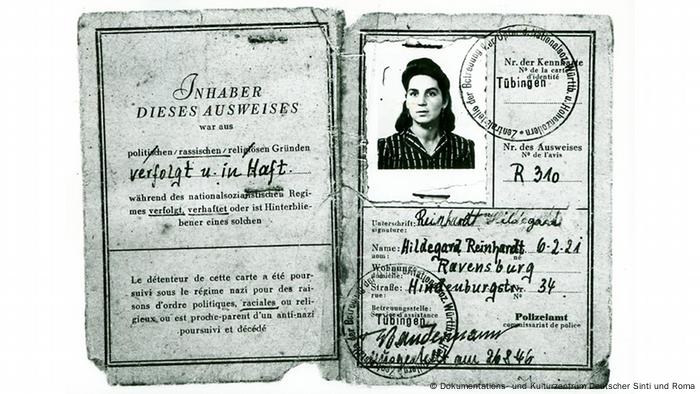 INHABER
DIESES AUSWEISES
war aus
politischen/rassischen/religiösen Gründen
verfolgt u. in Haft.
während des nationalsozialistischen Regi-
mes verfolgt, verhaftet oder ist Hinterblie-
bener eines solchen
Le détenteur de cette carte a été pour-
suivi sous le régime nazi pour des rai-
sons d'ordre politiques, raciales ou reli-
gieux, ou est proche-parent d'un anti-nazi
poursuivi et décédé
Nr. der Kennkarte
No de la carte
d'identité
Tübingen
Nr. des Ausweises
No de l'avis
R 310
Unterschrift: Reinhardt Hildegard
signature:
Name: Hildegard Reinhardt 6-2-21
nom: né
Wohnung: Ravensburg
Straße: Hindenburgstr. No 34
rue:
Betreuungsstelle:
Service d'assistance
Tübingen
Polizeiamt
commissariat de police
am 26.8.46
© Dokumentations- und Kulturzentrum Deutscher Sinti und Roma